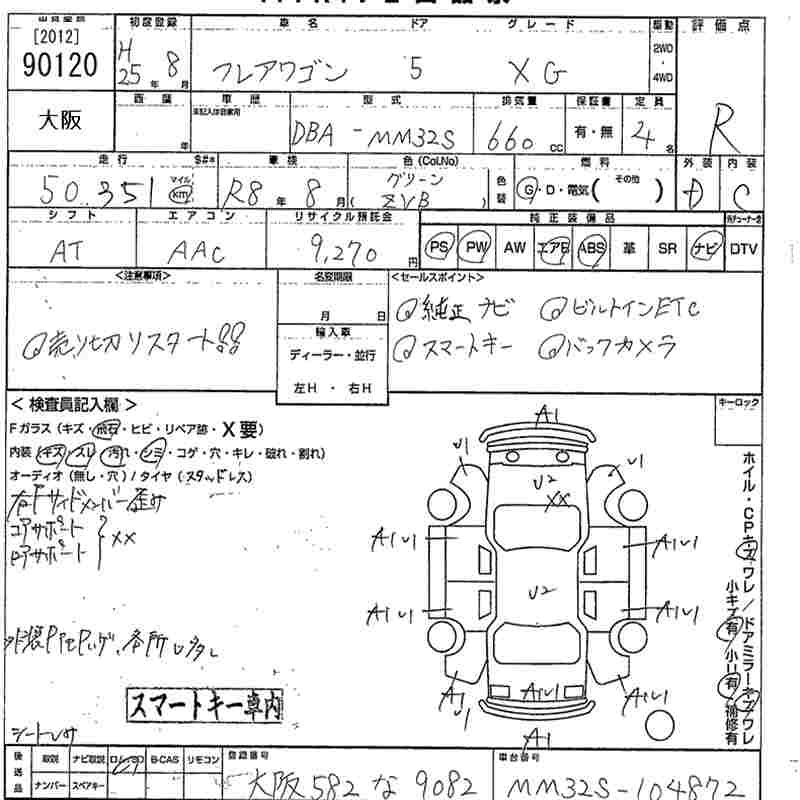 出品店番 初度登録 車名 ドア グレード 駆動 評価点
[2012]
90120
H 25年 8月 フレアワゴン 5 XG 2WD・4WD
大阪
西暦 車歴 型式 排気量 保証書 定員
年 未記入は自家用 DBA-MM32S 660cc 有・無 4名 R
走行 $#* 車検 色(CoLNo) 燃料 外装 内装
50,351 マイル km R8年 8月 グリーン ( ZVB ) 色替 G・D・電気( その他 ) D C
シフト エアコン リサイクル預託金 純正装備品
AT AAC 9,270円 PS PW AW エアB ABS 革 SR ナビ DTV
<注意事項> 名変期限 <セールスポイント>
月 日 ◎純正ナビ ◎ビルトインETC
◎売り切りスタート!! 輸入車 ◎スマートキー ◎バックカメラ
ディーラー・並行
左H・右H
<検査員記入欄> キーロック
Fガラス(キズ・飛石・ヒビ・リペア跡・X要)
内装(キズ・スレ・汚れ・シミ・コゲ・穴・キレ・破れ・割れ)
オーディオ(無し・穴)/タイヤ(スタッドレス)
右Fサイドメンバー歪み
コアサポート
ロアサポート XX
各所
スマートキー車内
A1
U1 U1
U2
XX
A1U1 A1U1
U2
A1U1 A1U1
A1 U1 A1U1 A1U1
A1
ホイル・CPキズワレ/ドアミラーキズワレ
小キズ有 小U有 補修有
後送品 取説 ナビ取説 B-CAS リモコン 登録番号 車台番号
ナンバー スペアキー 大阪582な9082 MM32S-104872